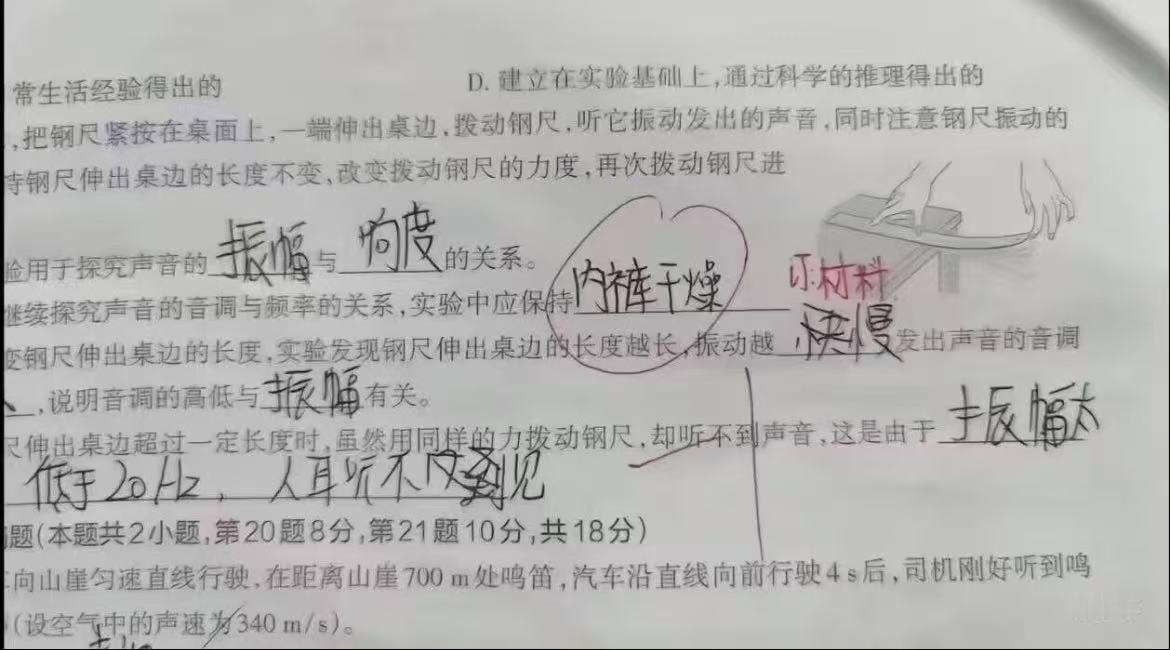 常生活经验得出的 D. 建立在实验基础上,通过科学的推理得出的
,把钢尺紧按在桌面上,一端伸出桌边,拨动钢尺,听它振动发出的声音,同时注意钢尺振动的
持钢尺伸出桌边的长度不变,改变拨动钢尺的力度,再次拨动钢尺进
验用于探究声音的 振幅 与 响度 的关系。
继续探究声音的音调与频率的关系,实验中应保持 内裤干燥 材料
变钢尺伸出桌边的长度,实验发现钢尺伸出桌边的长度越长,振动越 慢 发出声音的音调
,说明音调的高低与 振幅 有关。
尺伸出桌边超过一定长度时,虽然用同样的力拨动钢尺,却听不到声音,这是由于 振幅太
低于20Hz, 人耳 不 见
题(本题共2小题,第20题8分,第21题10分,共18分)
向山崖匀速直线行驶,在距离山崖700 m处鸣笛,汽车沿直线向前行驶4 s后,司机刚好听到鸣
(设空气中的声速为340 m/s)。